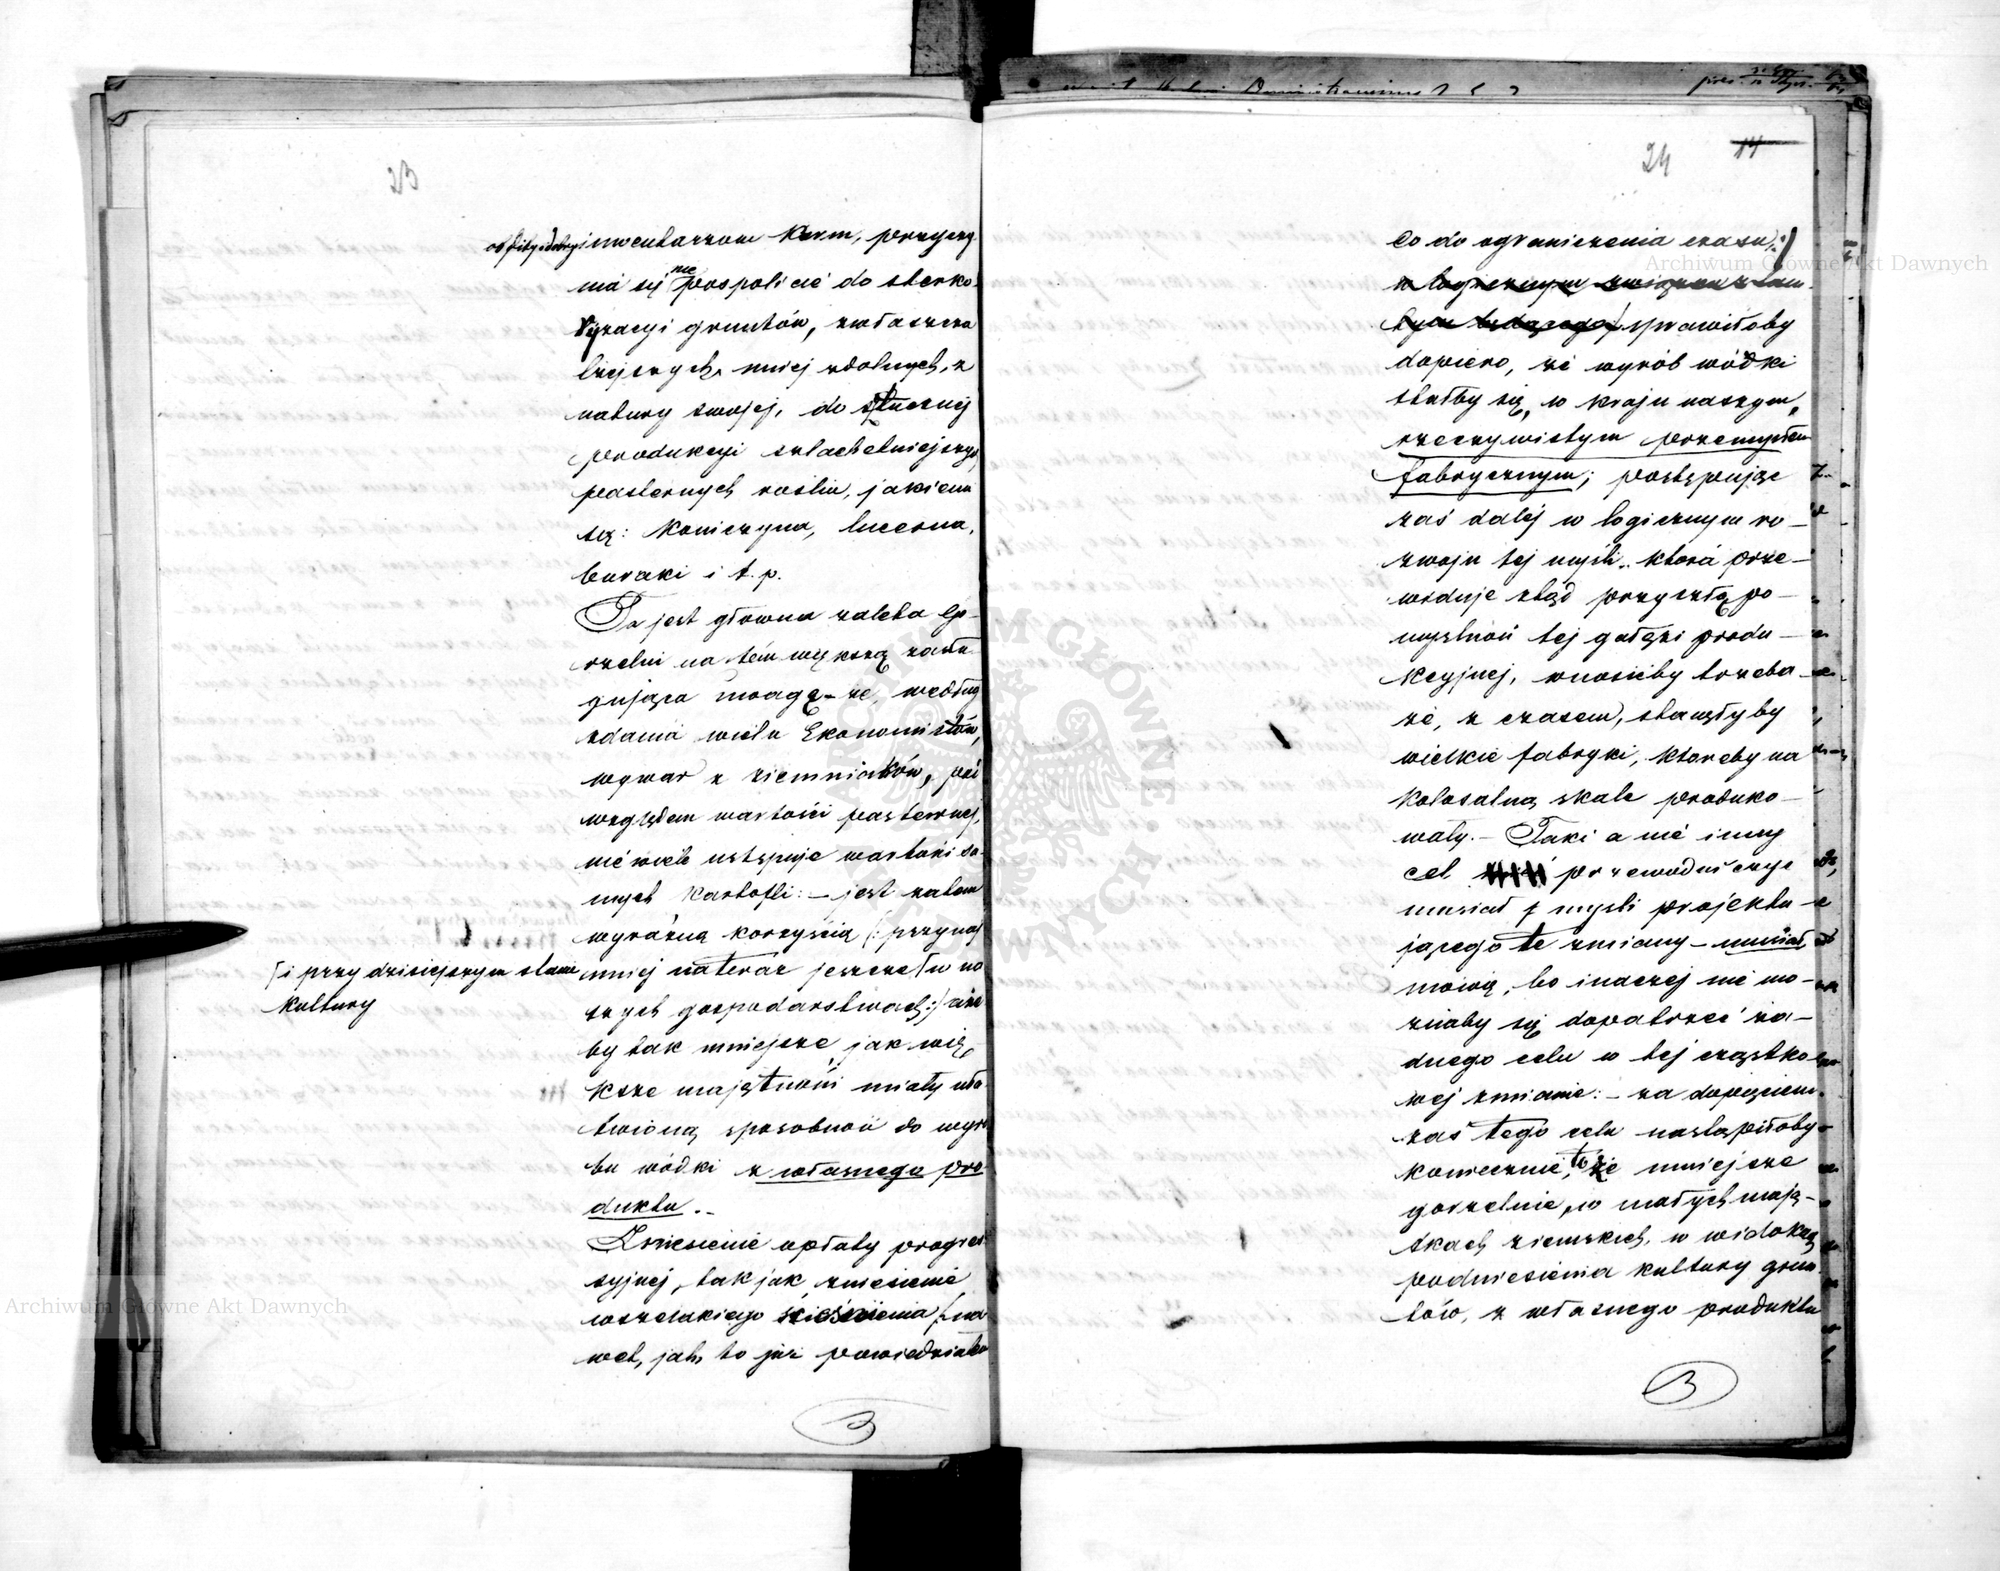 23
obfity i dobry inwentarzom karm, przyczy-
nia się nie pospolicie do sterko-
ryzacyi gruntów, zwłaszcza
lżejszych, mniej zdolnych, z
natury swojej, do sztucznej
produkcyi szlachetniejszych
pastewnych roślin, jakiemi
są: Koniczyna, lucerna,
buraki i t. p.
Ta jest głowna zaleta go-
rzelni na tém większą zasłu-
gująca uwagę – że, według
zdania wielu Ekonomistów,
wywar z ziemniaków, pod
względem wartości pastewnej,
nie wiele ustępuje wartości sa-
mych Kartofli: – jest zatem
wyraźną korzyścią /: przynaj
mniej na teraz jeszcze
/ i przy dzisiejszym stanie
kultury
w na
szych gospodarstwach :/ aże
by tak mniejsze, jak wię-
ksze majętności miały uła-
twioną sposobność do wyro
bu wódki z własnego pro-
duktu. –
Zniesienie opłaty progres
syjnej, tak jak zniesienie
wszelakiego ścieśnienia /: na
wet, jak to już powiedziałem
3
24 14
co do ograniczenia czasu, :/
w logicznym związku z tam
tym będącego / sprawiłoby
dopiero, że wyrób wódki
stałby się, w kraju naszym,
rzeczywistym przemysłem
fabrycznym; postępując
zaś dalej w logicznym ro-
zwoju tej myśli, która prze-
widuje ztąd przyszłą po-
myślność tej gałęzi produ-
kcyjnej, wnosićby trzeba
że, z czasem, stanęłyby
wielkie fabryki, któreby na
kolosalną skale produko-
wały. – Taki a nié inny
cel przewodniczyć
musiał myśli projektu-
jącego te zmiany – musiał
mówię, bo inaczej nie mo-
żnaby się dopatrzeć ża-
dnego celu w tej cząstko-
wej zmianie: – za dopięciem
zaś tego celu nastąpiłoby
koniecznie, to że mniejsze
gorzelnie, w małych mają-
tkach ziemskich, w widokach
podniesienia kultury grun
tów, z własnego produktu
3
Archiwum Główne Akt Dawnych
Archiwum Główne Akt Dawnych